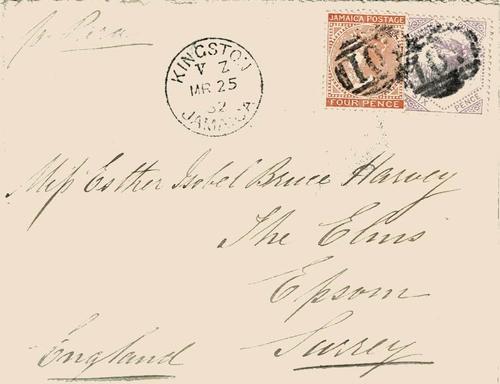 JAMAICA POSTAGE
FOUR PENCE
SIX PENCE
KINGSTON
V Z
MR 25
82
JAMAICA
Miss Esther Isobel Bruce Harvey
The Elms
Epsom
Surrey
England